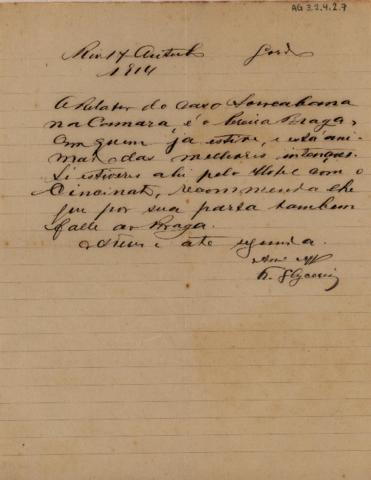 AG 3.2.4.2.7
Rio 17 Outub
1914
O Relator do caso Sorocabana
na Camara, é o Braga,
com quem ja estive, e está ani-
mado das melhores intenções.
Si estiveres ahi pelo Hotel com o
Cincinato, recommenda lhe
que por sua parte tambem
falle ao Braga.
Adeus e até segunda.
F. Glycerio